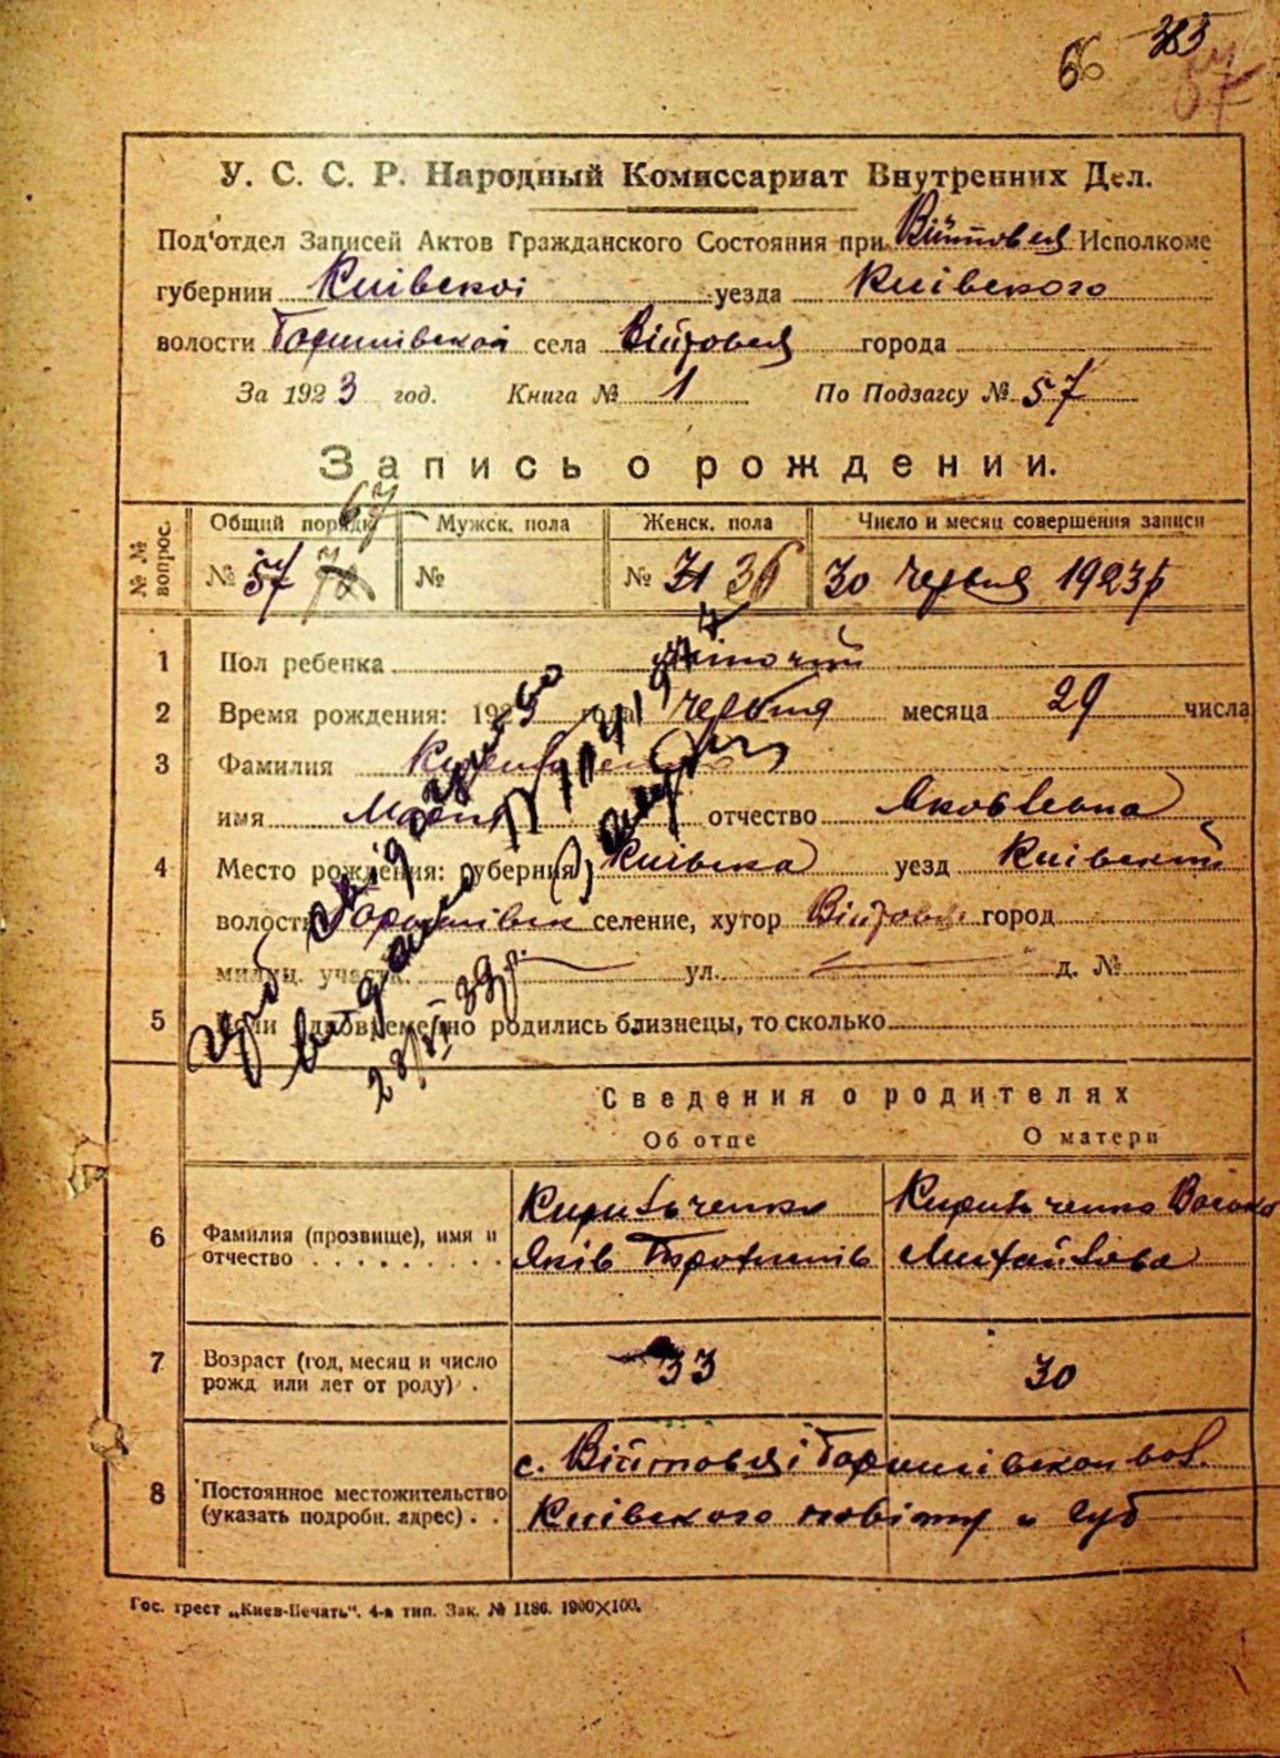 66 383
У. С. С. Р. Народный Комиссариат Внутренних Дел.
Под'отдел Записей Актов Гражданского Состояния при Війтовця Исполкоме
губернии Київскоі уезда Київского
волости села Війтовця города
За 1923 год. Книга № 1 По Подзагсу № 57
Запись о рождении.
67
№№ вопрос. Общий порядк Мужск. пола Женск. пола Число и месяц совершения записи
№ 57 № № 31 36 30 Червня 1923р
1 Пол ребенка жіночий
2 Время рождения: 1923 года Червня месяца 29 числа
3 Фамилия
имя Марія отчество Яковлевна
4 Место рождения: губерния Київска уезд Київский
волости селение, хутор Війтовця город
милиц. участк. ул. д. №
5 Если одновременно родились близнецы, то сколько
28/VI 39р.
Сведения о родителях
Об отце О матери
6 Фамилия (прозвище), имя и отчество Кирильченко Яків Кирильченко Михайлова
7 Возраст (год, месяц и число рожд или лет от роду) 33 30
8 Постоянное местожительство (указать подробн. адрес) с. Війтовці вол.
Київского повіту и губ
Гос. трест „Киев-Печать“. 4-я тип. Зак. № 1186. 1900×100.